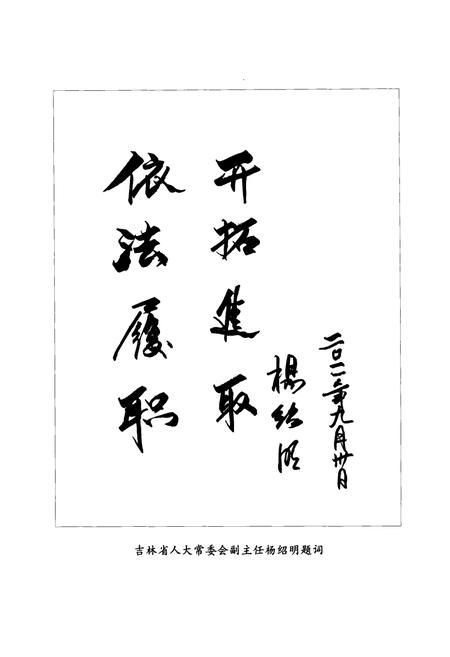 依法履职
开拓進取
楊绍明
二〇一一年九月卅日
吉林省人大常委会副主任杨绍明题词